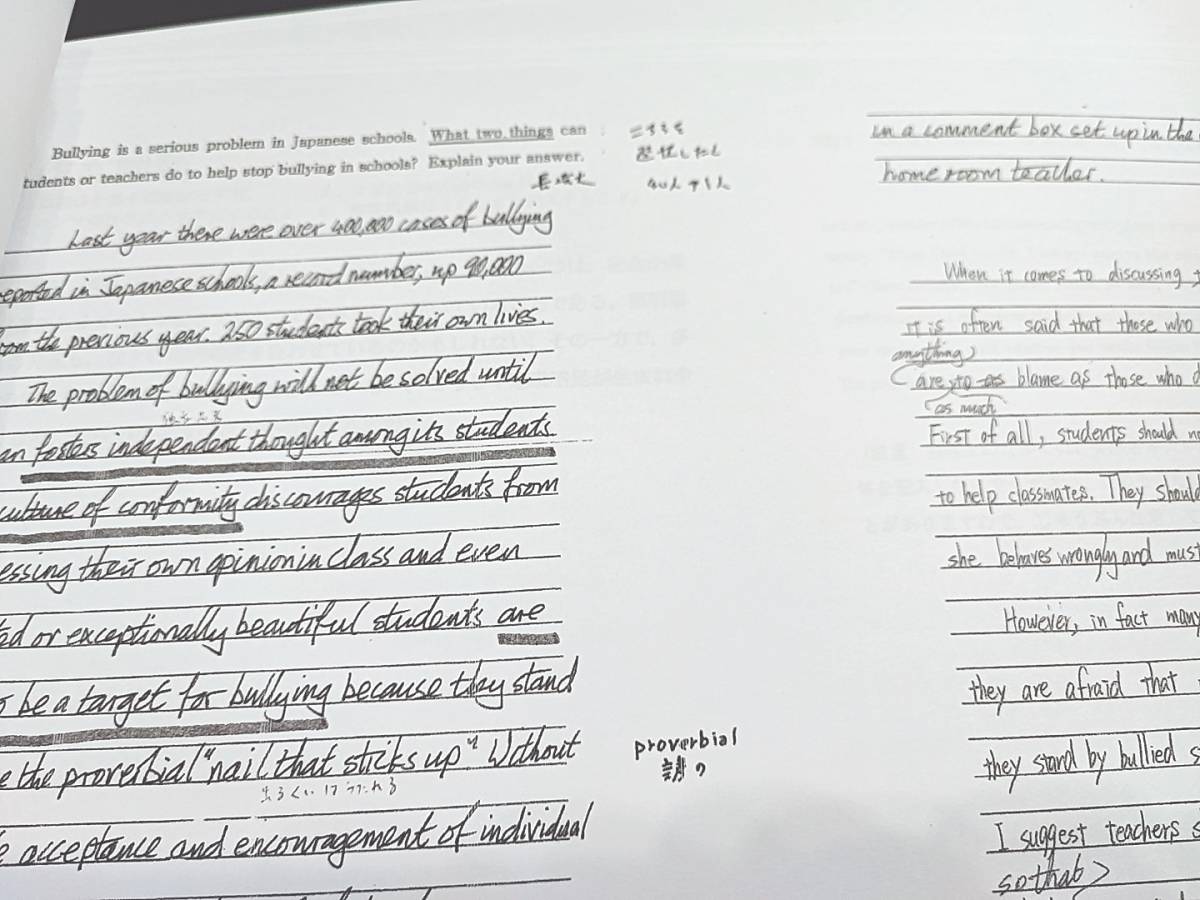 Bullying is a serious problem in Japanese schools. What two things can
tudents or teachers do to help stop bullying in schools? Explain your answer.
Last year there were over 400,000 cases of bullying
reported in Japanese schools, a record number, up 90,000
from the previous year. 250 students took their own lives.
The problem of bullying will not be solved until
an fosters independent thought among its students
culture of conformity discourages students from
essing their own opinion in class and even
ted or exceptionally beautiful students are
be a target for bullying because they stand
e the proverbial "nail that sticks up" Without
出るくいはうたれる
acceptance and encouragement of individual
proverbial
諺の
in a comment box set up in the
homeroom teacher.
When it comes to discussing
It is often said that those who
anything
are to as blame as those who d
as much
First of all, students should no
to help classmates. They should
she behaves wrongly and must
However, in fact many
they are afraid that
they stand by bullied s
I suggest teachers s
so that